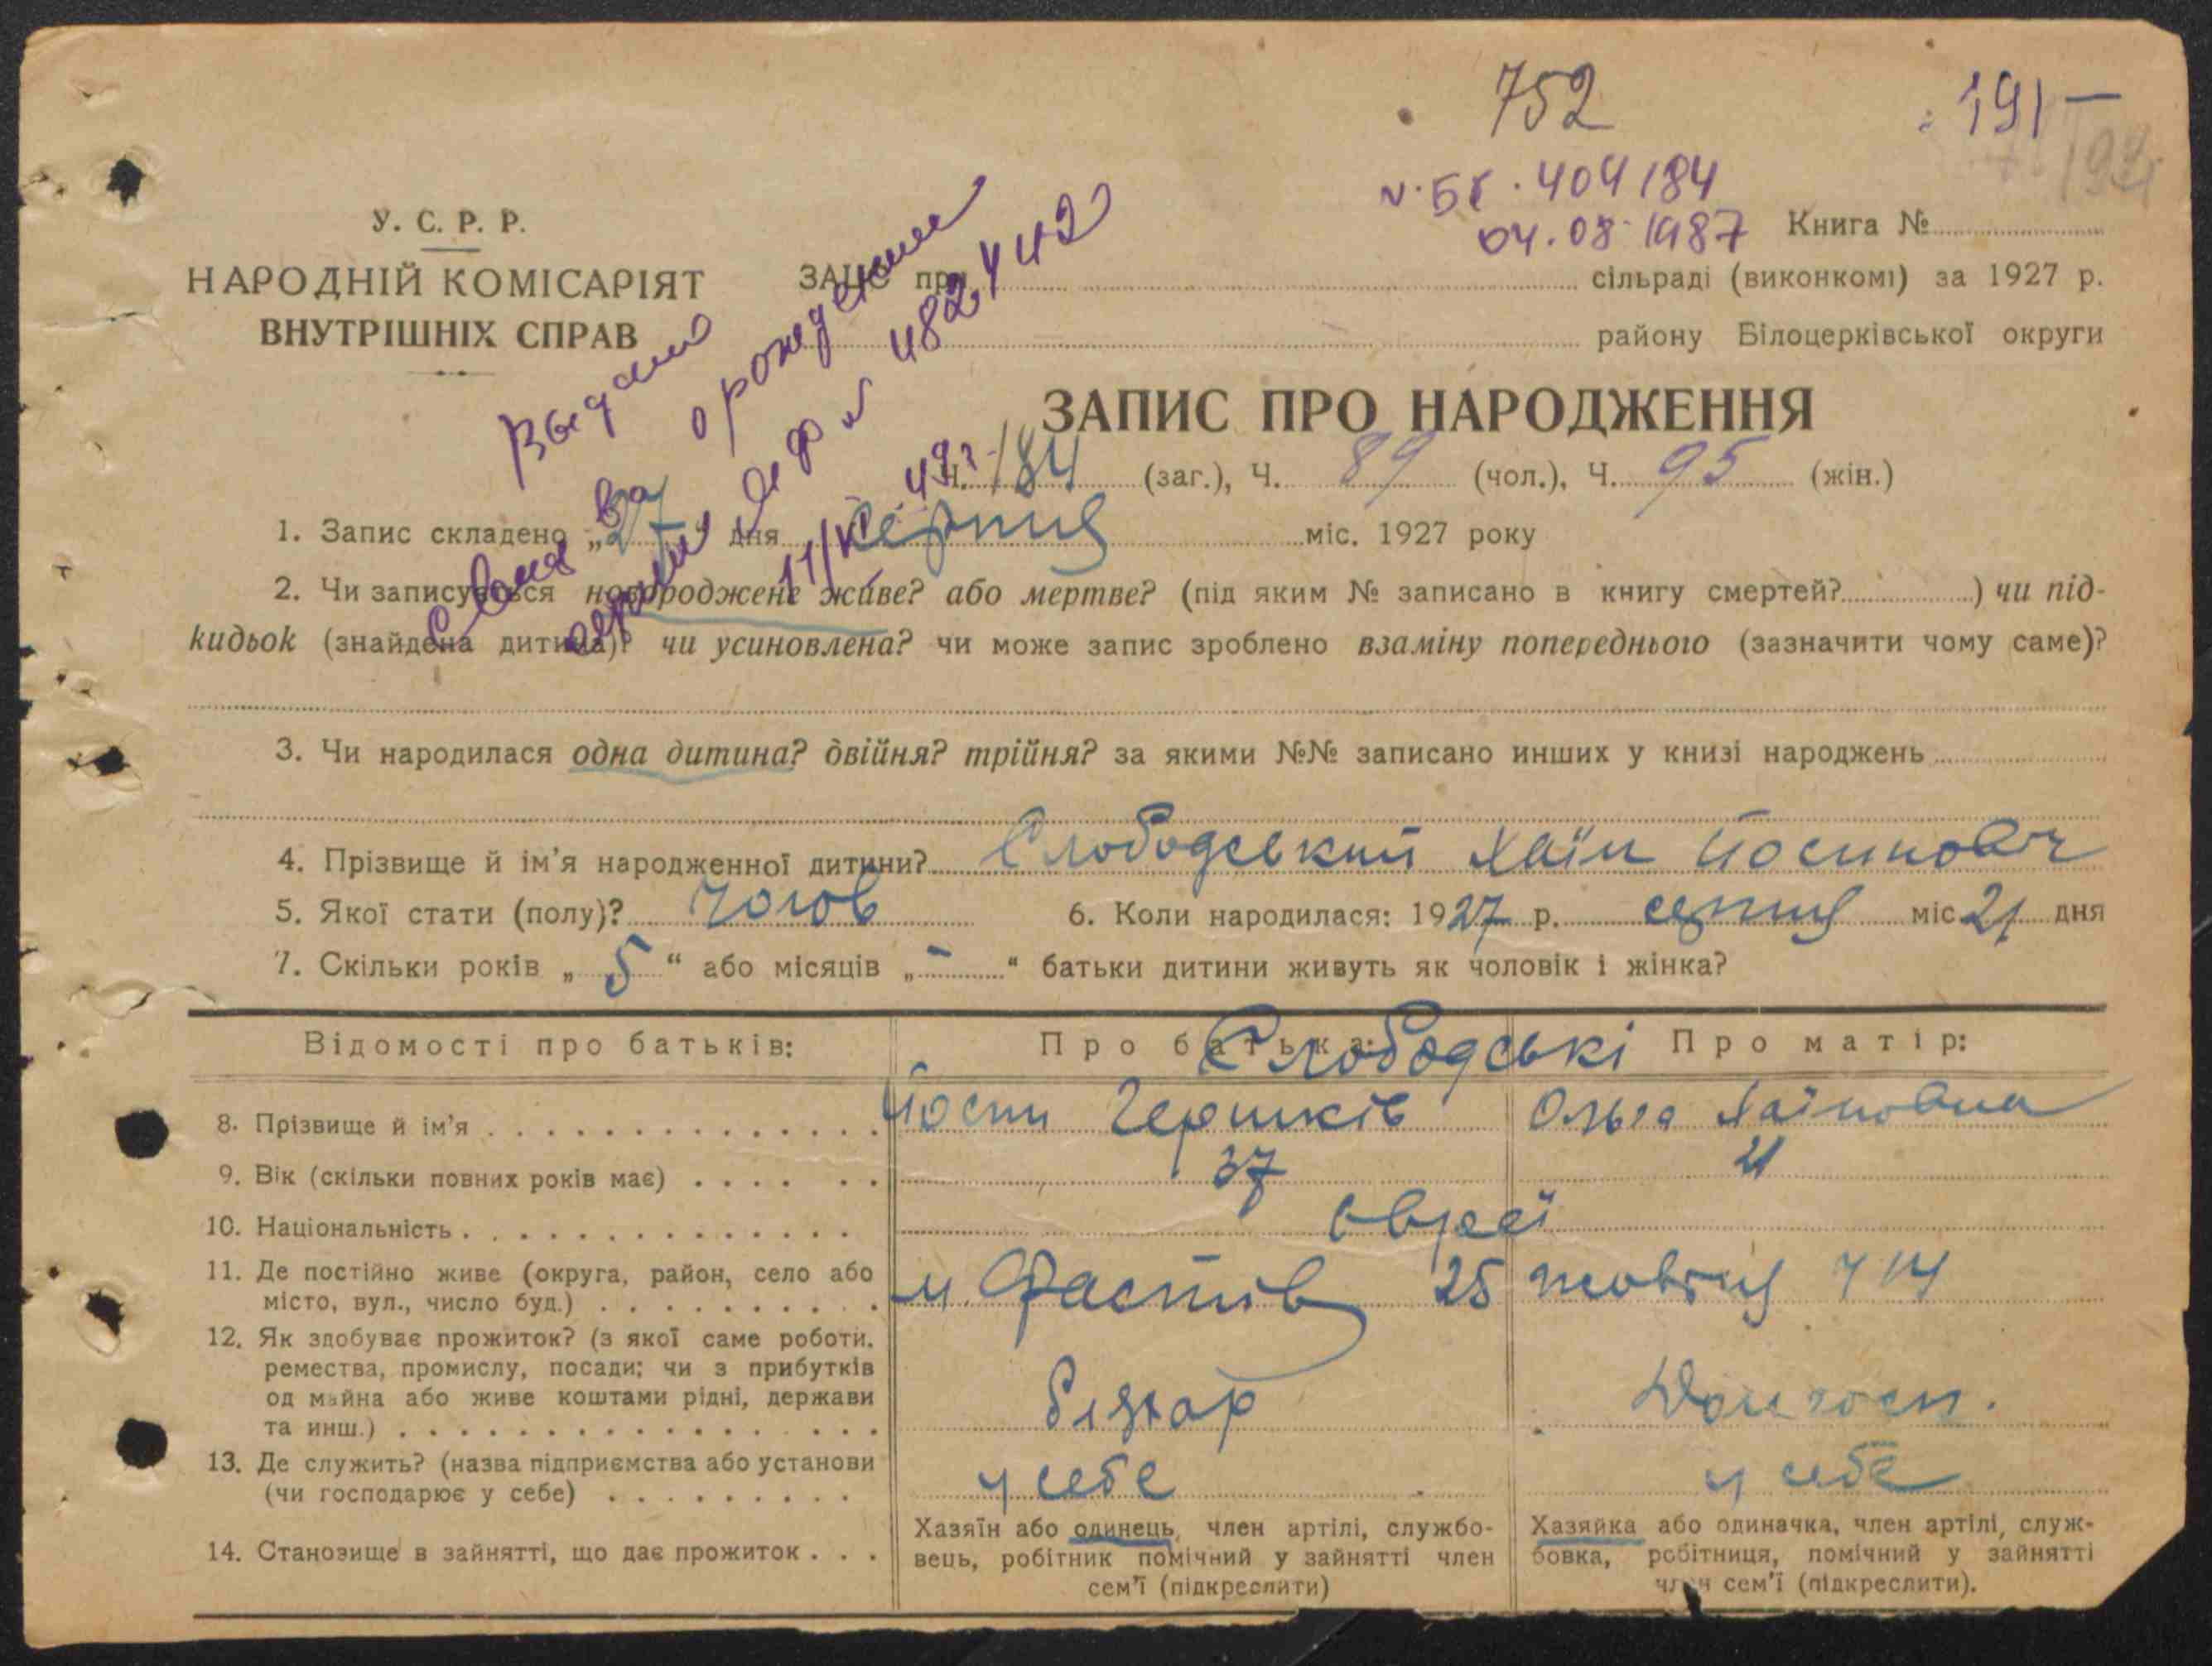 752
191 —
193
N. БК. 404184
04.08.1987 Книга №
У. С. Р. Р.
НАРОДНІЙ КОМІСАРІЯТ
ВНУТРІШНІХ СПРАВ
ЗАЦС при сільраді (виконкомі) за 1927 р.
району Білоцерківської округи
Выдано
о рождении
N 482442
ЗАПИС ПРО НАРОДЖЕННЯ
Ч. 184 (заг.), Ч. 89 (чол.), Ч. 95 (жін.)
1. Запис складено „27" дня серпня міс. 1927 року
2. Чи записується новороджене живе? або мертве? (під яким № записано в книгу смертей? ) чи під-
кидьок (знайдена дитина)? чи усиновлена? чи може запис зроблено взаміну попереднього (зазначити чому саме)?
3. Чи народилася одна дитина? двійня? трійня? за якими №№ записано инших у книзі народжень
4. Прізвище й ім'я народженної дитини? Слободський Хаїм Йосипович
5. Якої стати (полу)? чолов 6. Коли народилася: 1927 р. серпня міс. 21 дня
7. Скільки років „ 5 “ або місяців „ — “ батьки дитини живуть як чоловік і жінка?
Відомості про батьків: Про батька: Слободські Про матір:
8. Прізвище й ім'я Йосип Гершків Ольга Хаїмовна
9. Вік (скільки повних років має) 37 21
10. Національність євреї
11. Де постійно живе (округа, район, село або
місто, вул., число буд.) м. Фастів 25 жовтня ч 14
12. Як здобуває прожиток? (з якої саме роботи.
ремества, промислу, посади; чи з прибутків
од майна або живе коштами рідні, держави
та инш.) Домгосп.
13. Де служить? (назва підприємства або установи
(чи господарює у себе) у себе у себе
14. Становище в зайнятті, що дає прожиток . . .
Хазяїн або одинець, член артілі, службо-
вець, робітник помічний у зайнятті член
сем'ї (підкреслити)
Хазяйка або одиначка, член артілі, служ-
бовка, робітниця, помічний у зайнятті
член сем'ї (підкреслити).